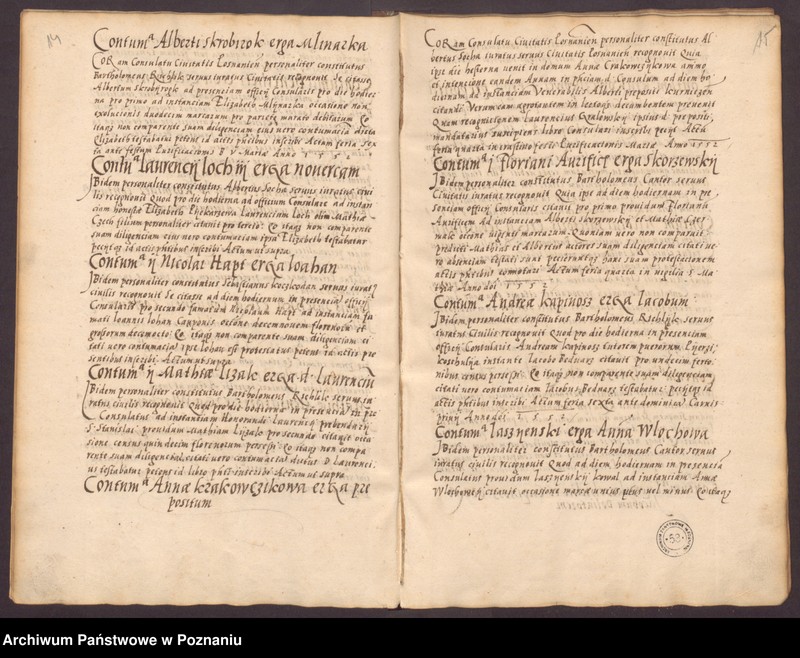 14
Contum^a Alberti skrobirok erga Mlinarka
Coram Consulatu Civitatis Losnanien personaliter constitutus
Bartholomeus Rzehlik servus iuratus Civitatis recognovit Se citasse
Albertum skrobyrogk ad presenciam officij Consularis pro die hodier
na pro primo ad instanciam Elizabeth Mlynarzka occasione non
exolucionis duodecim marcarum pro pariete murato debitarum Co
itaqз non comparente suam diligenciam eius vero contumaciā dicta
Elizabeth testabatur petens id actis pñtibus inscribi Actum feria Sex
ta ante festum Purificacionis B V Mariæ Anno 1552
Contu^a Laurencij loch ij erga novercam
Ibidem personaliter constitutus Albertus Socha servus iuratus civi
lis recognovit Quod pro die hodierna ad officium Consulare ad instan
ciam honestæ Elizabeth Laurencium Loch olim Mathiæ
Czech filium personaliter citavit pro tercio Co itaqз non comparente
suam diligenciam eius vero contumaciam ipsa Elizabeth testabatur
petens id actis pñtibus inscribi Actum ut supra
Contum^a ij Nicolai Hapt erga Ioahan
Ibidem personaliter constitutus Sebastianus koczkodan servus iurat
civilis recognovit Se citasse ad diem hodiernum in presencia officij
Consularis pro secundo famatum Nicolaum Hapt ad instanciam fa
mati Ioannis Iohan Cauponis occōne decem novem florenorum et
grossorum decemocto Co itaqз non comparente suam diligenciam ci
tati vero contumaciā ipse Iohan est protestatus petens id actis pre
sentibus inscribi Actum ut supra
Contum^a ij Mathiæ lizak erga d. Laurenciū
Ibidem personaliter constitutus Bartholomeus Rzehlik servus iu
ratus civilis recognovit Quod pro die hodierna in presencia officij
Consulatus ad instanciam Honorandi Laurencij prebendarij
S. Stanislai providum Mathiam Lyzak pro secundo citavit occa
sione census quindecim florenorum persessi Co itaqз non compa
rente suam diligenciā citati vero contumaciā dictus D. Laurenci
us testabatur petens id libro pñti inscribi Actum ut supra
Contum^a Annæ krakowczikowa erga pre
positum
15
Coram Consulatu Civitatis Losnanien personaliter constitutus Al
bertus Socha iuratus servus Civitatis Losnanien recognovit Quia
ipse die hesterna venit in domum Annæ Crakowczykowa animo
et intencione eandem Annam in pñciam d. Consulum ad diem ho
diernam ad instanciam Venerabilis Alberti prepositi kurniczen
citandi Verum eam egrotantem in lectoqз decumbentem prevenit
Quam recognicionem Laurencius Goralowskij ipsius d prepositi
mandatarius suscipiens libro Consulari inscribi petijt Actū
feria quarta in crastino festi Purificacionis Mariæ Anno 1552
Contum^a j Floriani Aurifici erga Skorzewskij
Ibidem personaliter constitutus Bartholomeus Cantor servus
Civitatis iuratus recognovit Quia ipse ad diem hodiernam in pre
senciam officij Consularis citavit pro primo providum Florianū
Aurificem Ad instanciam Alberti Skorzewskij et Mathiæ Czer
nak occōne viginti marcarum Quoniam vero non comparuit
prediti Mathias et Albertus actores suam diligenciam citati ve
ro absenciam testati sunt pecieruntqз hanc suam protestacionem
actis pñtibus connotari Actum feria quarta in vigilia S Ma
thiæ Anno dni 1552
Contum^a Andreæ kapinosz erga Iacobum
Ibidem personaliter constitutus Bartholomeus Rzehlijk servus
iuratus Civilis recognovit Quod pro die hodierna in presenciam
officij Consularis Andream kapinosz tutorem puerorum
instante Iacobo Bednarz citavit pro undecim ferto
nibus census persessi Co itaqз non comparente suam diligenciam
citati vero contumaciam Iacobus Bednarz testabatur petens id
actis pñtibus inscribi Actum feria sexta ante dominicam Carnis
privij Anno dni 1552
Contum^a laszynski erga Anna Wlochowa
Ibidem personaliter constitutus Bartholomeus Cantor servus
iuratus civilis recognovit Quod ad diem hodiernum in presencia
Consulari providum laszynskij kowal ad instanciam Annæ
Wlochowa citavit occasione marcæ unius plus vel minus Co itaqз
53
Archiwum Państwowe w Poznaniu